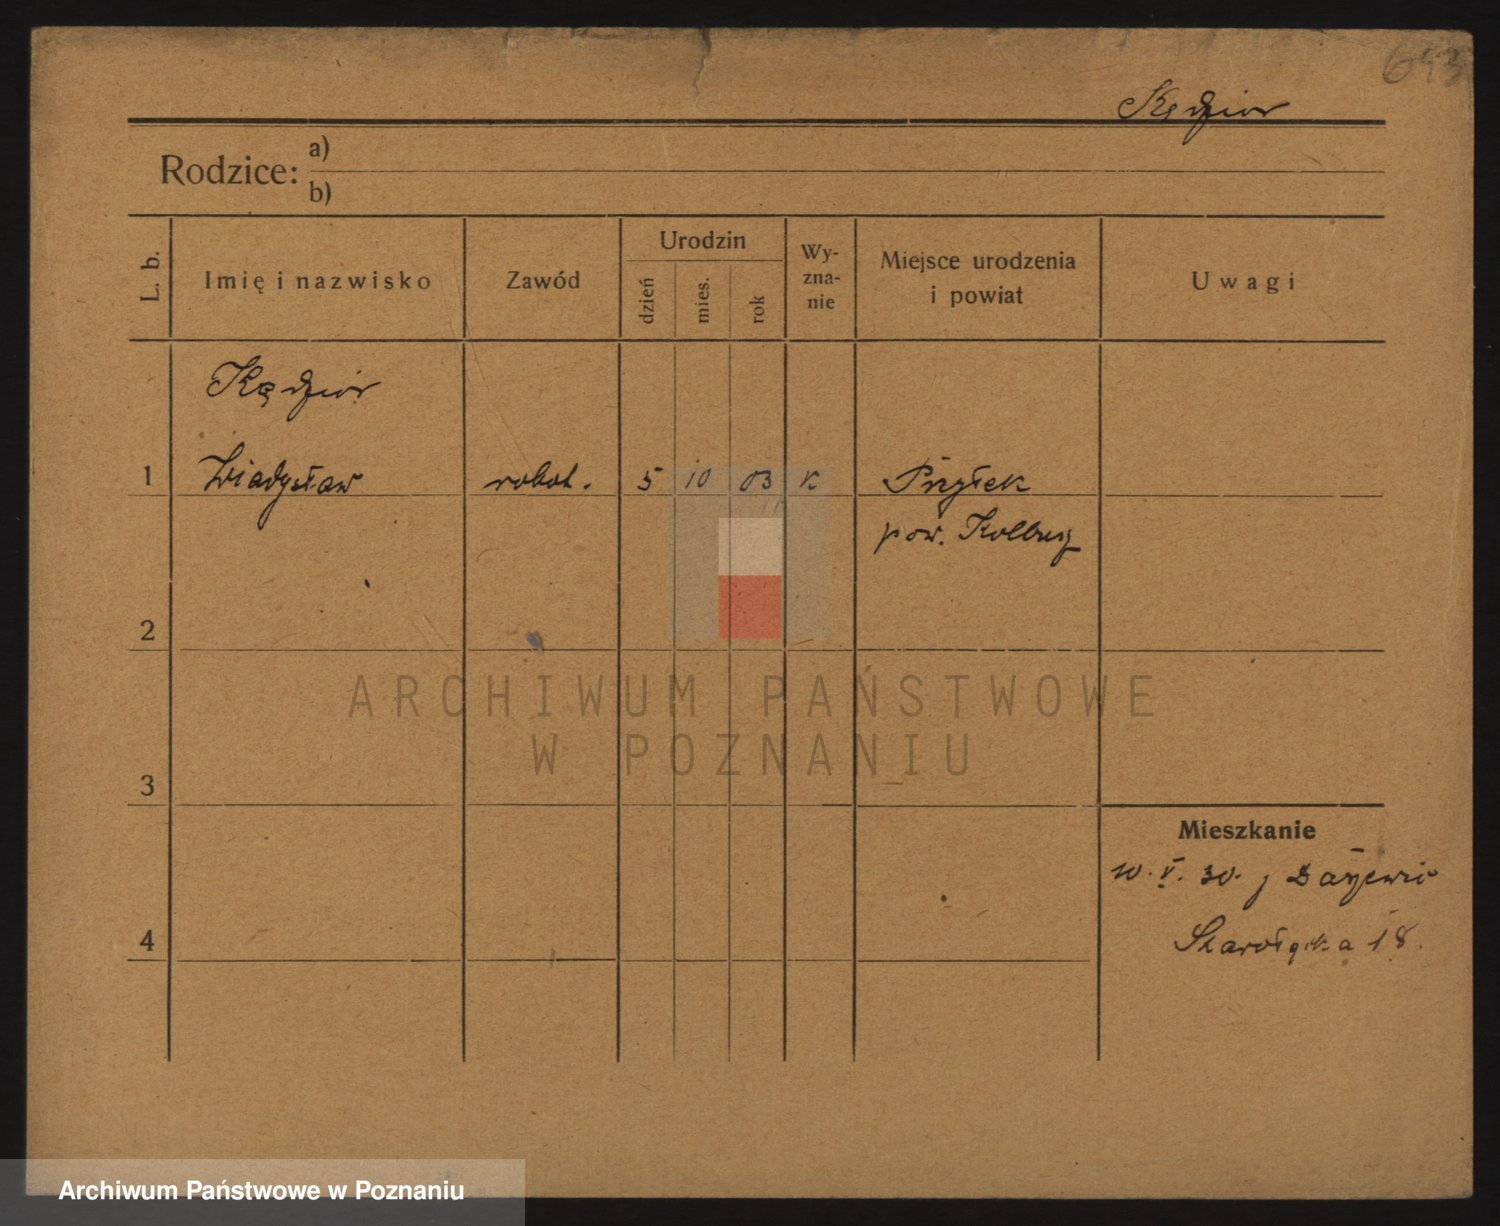 643
Kędzior
Rodzice: a)
b)
L. b.
Imię i nazwisko
Zawód
Urodzin
dzień
mies.
rok
Wy-
zna-
nie
Miejsce urodzenia
i powiat
Uwagi
Kędzior
1 Władysław robot. 5 10 03 k Przyłęk
pow. Kolbusz
2
ARCHIWUM PAŃSTWOWE
W POZNANIU
3
Mieszkanie
10. V. 30.
4
Starołęcka 18.
Archiwum Państwowe w Poznaniu